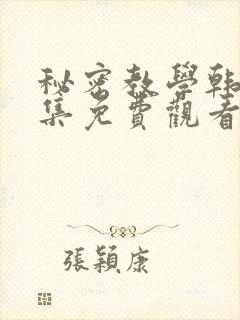 秘密教學韩
集免費觀看
張穎康